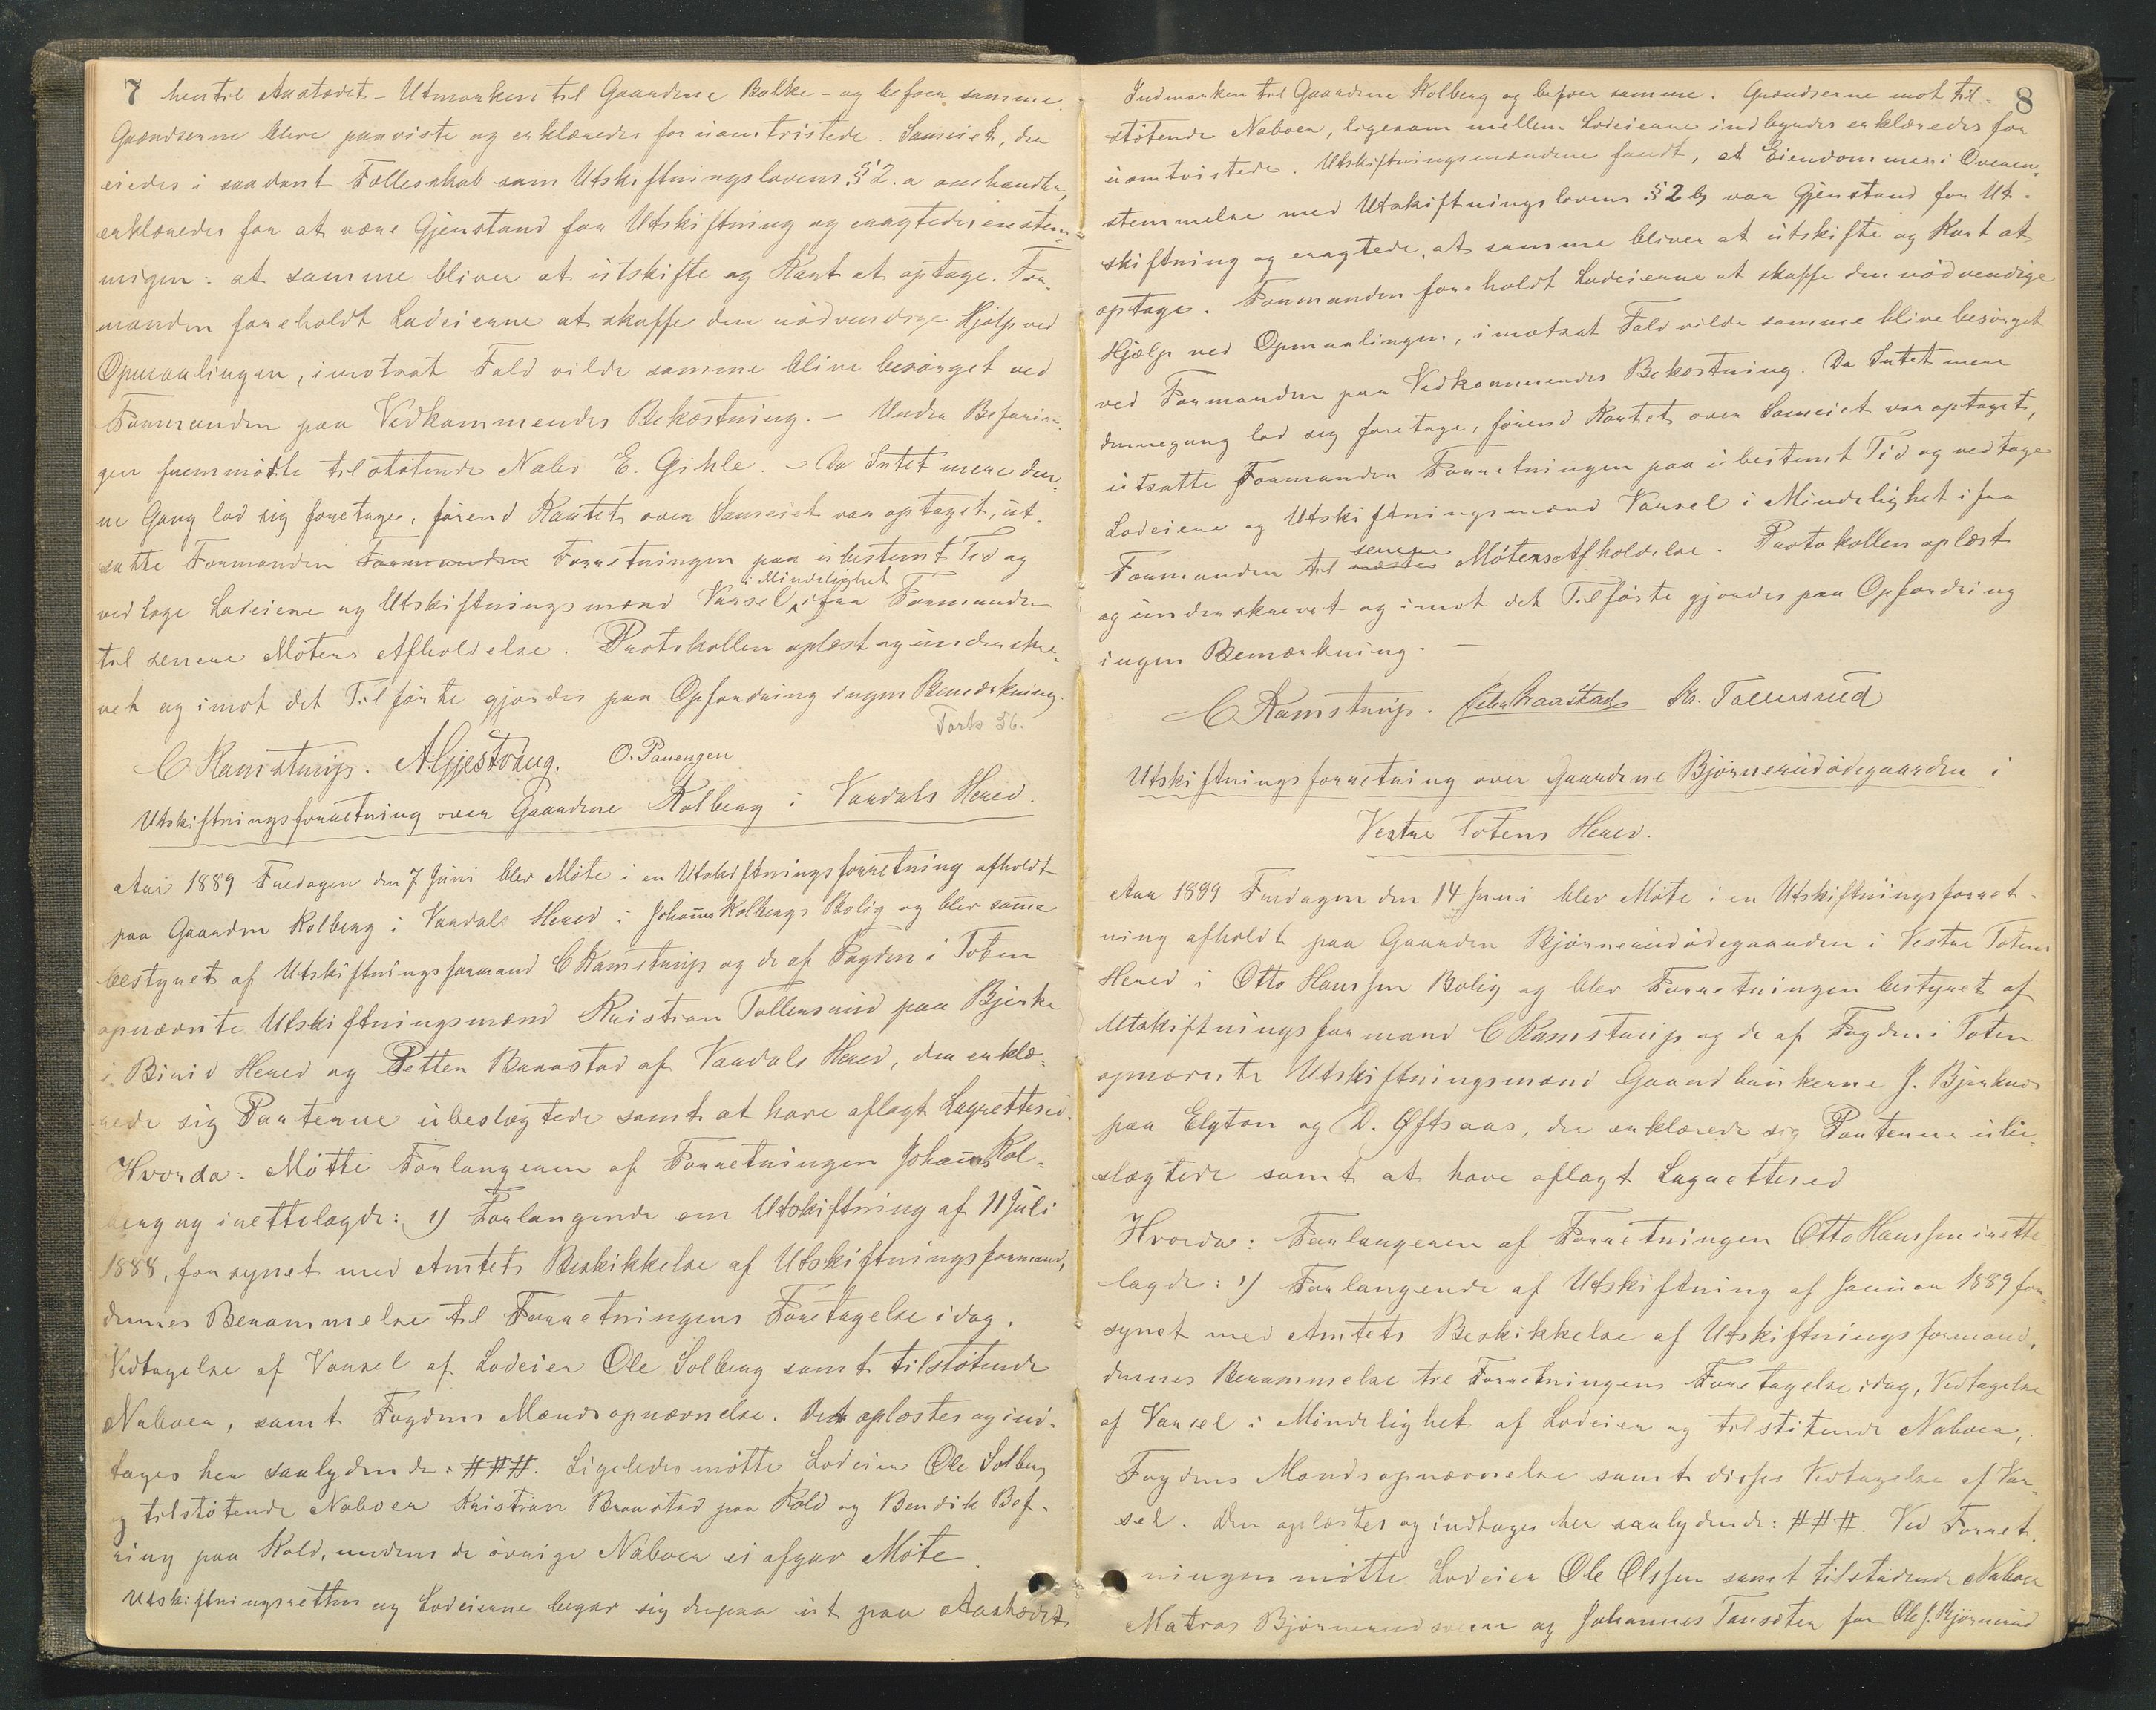 7 hen til Aastædet - Utmarken til Gaardene Bolke - og befoer samme.
Grændserne bleve paaviste og erklæredes for uomtvistede. Sameiet, der
eiedes i saadant Fællesskab som Utskiftningslovens § 2.a omhandler,
erklæredes for at være Gjenstand for Utskiftning og eragtedes enstem-
migen: at samme bliver at utskifte og Kart at optage. For-
manden foreholdt Lodeierne at skaffe den nödvendige Hjælp ved
Opmaalingen, i motsat Fald vilde samme blive besörget ved
Formanden paa Vedkommendes Bekostning. - Under Befarin-
gen fremmötte tilstötende Nabo E. Gihle. - Da Intet mere den-
ne Gang lod sig foretage, förend Kartet over Sameiet var optaget, ut-
satte Formanden Formanden Forretningen paa ubestemt Tid og
vedtoge Lodeiene og Utskiftningsmænd Varsel i Mindelighet ifra Formanden
til senere Möters Afholdelse. Protokollen oplæst og underskre-
vet og imot det Tilförte gjordes paa Opfordring ingen Bemærkning.
Forts 56.
C Ramstrup. A. Gjestrang. O. Pauengen
Utskiftningsforretning over Gaardene Kolberg i Vardals Hered.
Aar 1889 Fredagen den 7 Juni blev Möte i en Utskiftningsforretning afholdt
paa Gaarden Kolberg i Vardals Hered i Johannes Kolbergs Bolig og blev samme
bestyret af Utskiftningsformand C Ramstrup og de af Fogden i Toten
opnævnte Utskiftningsmænd Kristian Tollersrud paa Bjerke
i Birid Hered og Petter Braastad af Vardals Hered, der erklæ-
rede sig Parterne ubeslægtede samt at have aflagt Lagrettesed.
Hvorda: Mötte Forlangeren af Forretningen Johannes Kol-
berg og irettelagde: 1) Forlangende om Utskiftning af 11 Juli
1888, forsynet med Amtets Beskikkelse af Utskiftningsformand,
dennes Berammelse til Forretningens Foretagelse idag,
Vedtagelse af Varsel af Lodeier Ole Solberg samt tilstötende
Naboer, samt Fogdens Mændsopnævnelse. Det oplæstes og ind-
tages her saalydende: ###. Ligeledes mötte Lodeier Ole Solberg
og tilstötende Naboer Kristian Braastad paa Kold og Bendik Bef-
ring paa Kold, medens de övrige Naboer ei afgav Möte.
Utskiftningsretten og Lodeierne begav sig derpaa ut paa Aastædet
8
Indmarken til Gaardene Kolberg og befoer samme. Grændserne mot til-
stötende Naboer, ligesom mellem Lodeierne indbyrdes erklæredes for
uomtvistede. Utskiftningsmændene fandt, at Eiendommen i Overen-
stemmelse med Utskiftningslovens § 2 b var Gjenstand for Ut-
skiftning og eragtede, at samme bliver at utskifte og Kart at
optage. Formanden foreholdt Lodeierne at skaffe den nödvendige
Hjælp ved Opmaalingen, i motsat Fald vilde samme blive besörget
ved Formanden paa Vedkommendes Bekostning. Da Intet mere
dennegang lod sig foretage, förend Kartet over Sameiet var optaget,
utsatte Formanden Forretningen paa ubestemt Tid og vedtoge
Lodeiene og Utskiftningsmænd Varsel i Mindelighet ifra
Formanden til næste senere Möters Afholdelse. Protokollen oplæst
og underskrevet og imot det Tilförte gjordes paa Opfordring
ingen Bemærkning. -
C Ramstrup. Peter Braastad Kr. Tollersrud
Utskiftningsforretning over Gaardene Björnerudödegaarden i
Vestre Totens Hered.
Aar 1899 Fredagen den 14 Juni blev Möte i en Utskiftningsforret-
ning afholdt paa Gaarden Björnerudödegaarden i Vestre Totens
Hered i Otto Hanssen Bolig og blev Forretningen bestyret af
Utskiftningsformand C Ramstrup og de af Fogden i Toten
opnævnte Utskiftningsmænd Gaardbrukerne J. Björknes
paa Elyton og D. Öftsaas, der erklærede sig Parterne ube-
slægtede samt at have aflagt Lagrettesed
Hvorda: Forlangeren af Forretningen Otto Hanssen irette-
lagde: 1) Forlangende af Utskiftning af Januar 1889 for-
synet med Amtets Beskikkelse af Utskiftningsformand,
dennes Berammelse til Forretningens Foretagelse idag, Vedtagelse
af Varsel i Mindelighet af Lodeier og tilstötende Naboer,
Fogdens Mandsopnævnelse samt disses Vedtagelse af Var-
sel. Den oplæstes og indtages her saalydende: ###. Ved Forret-
ningen mötte Lodeier Ole Olssen samt tilstödende Naboer
Matros Björnerud og Johannes Tansöten for Ole J. Björnerud